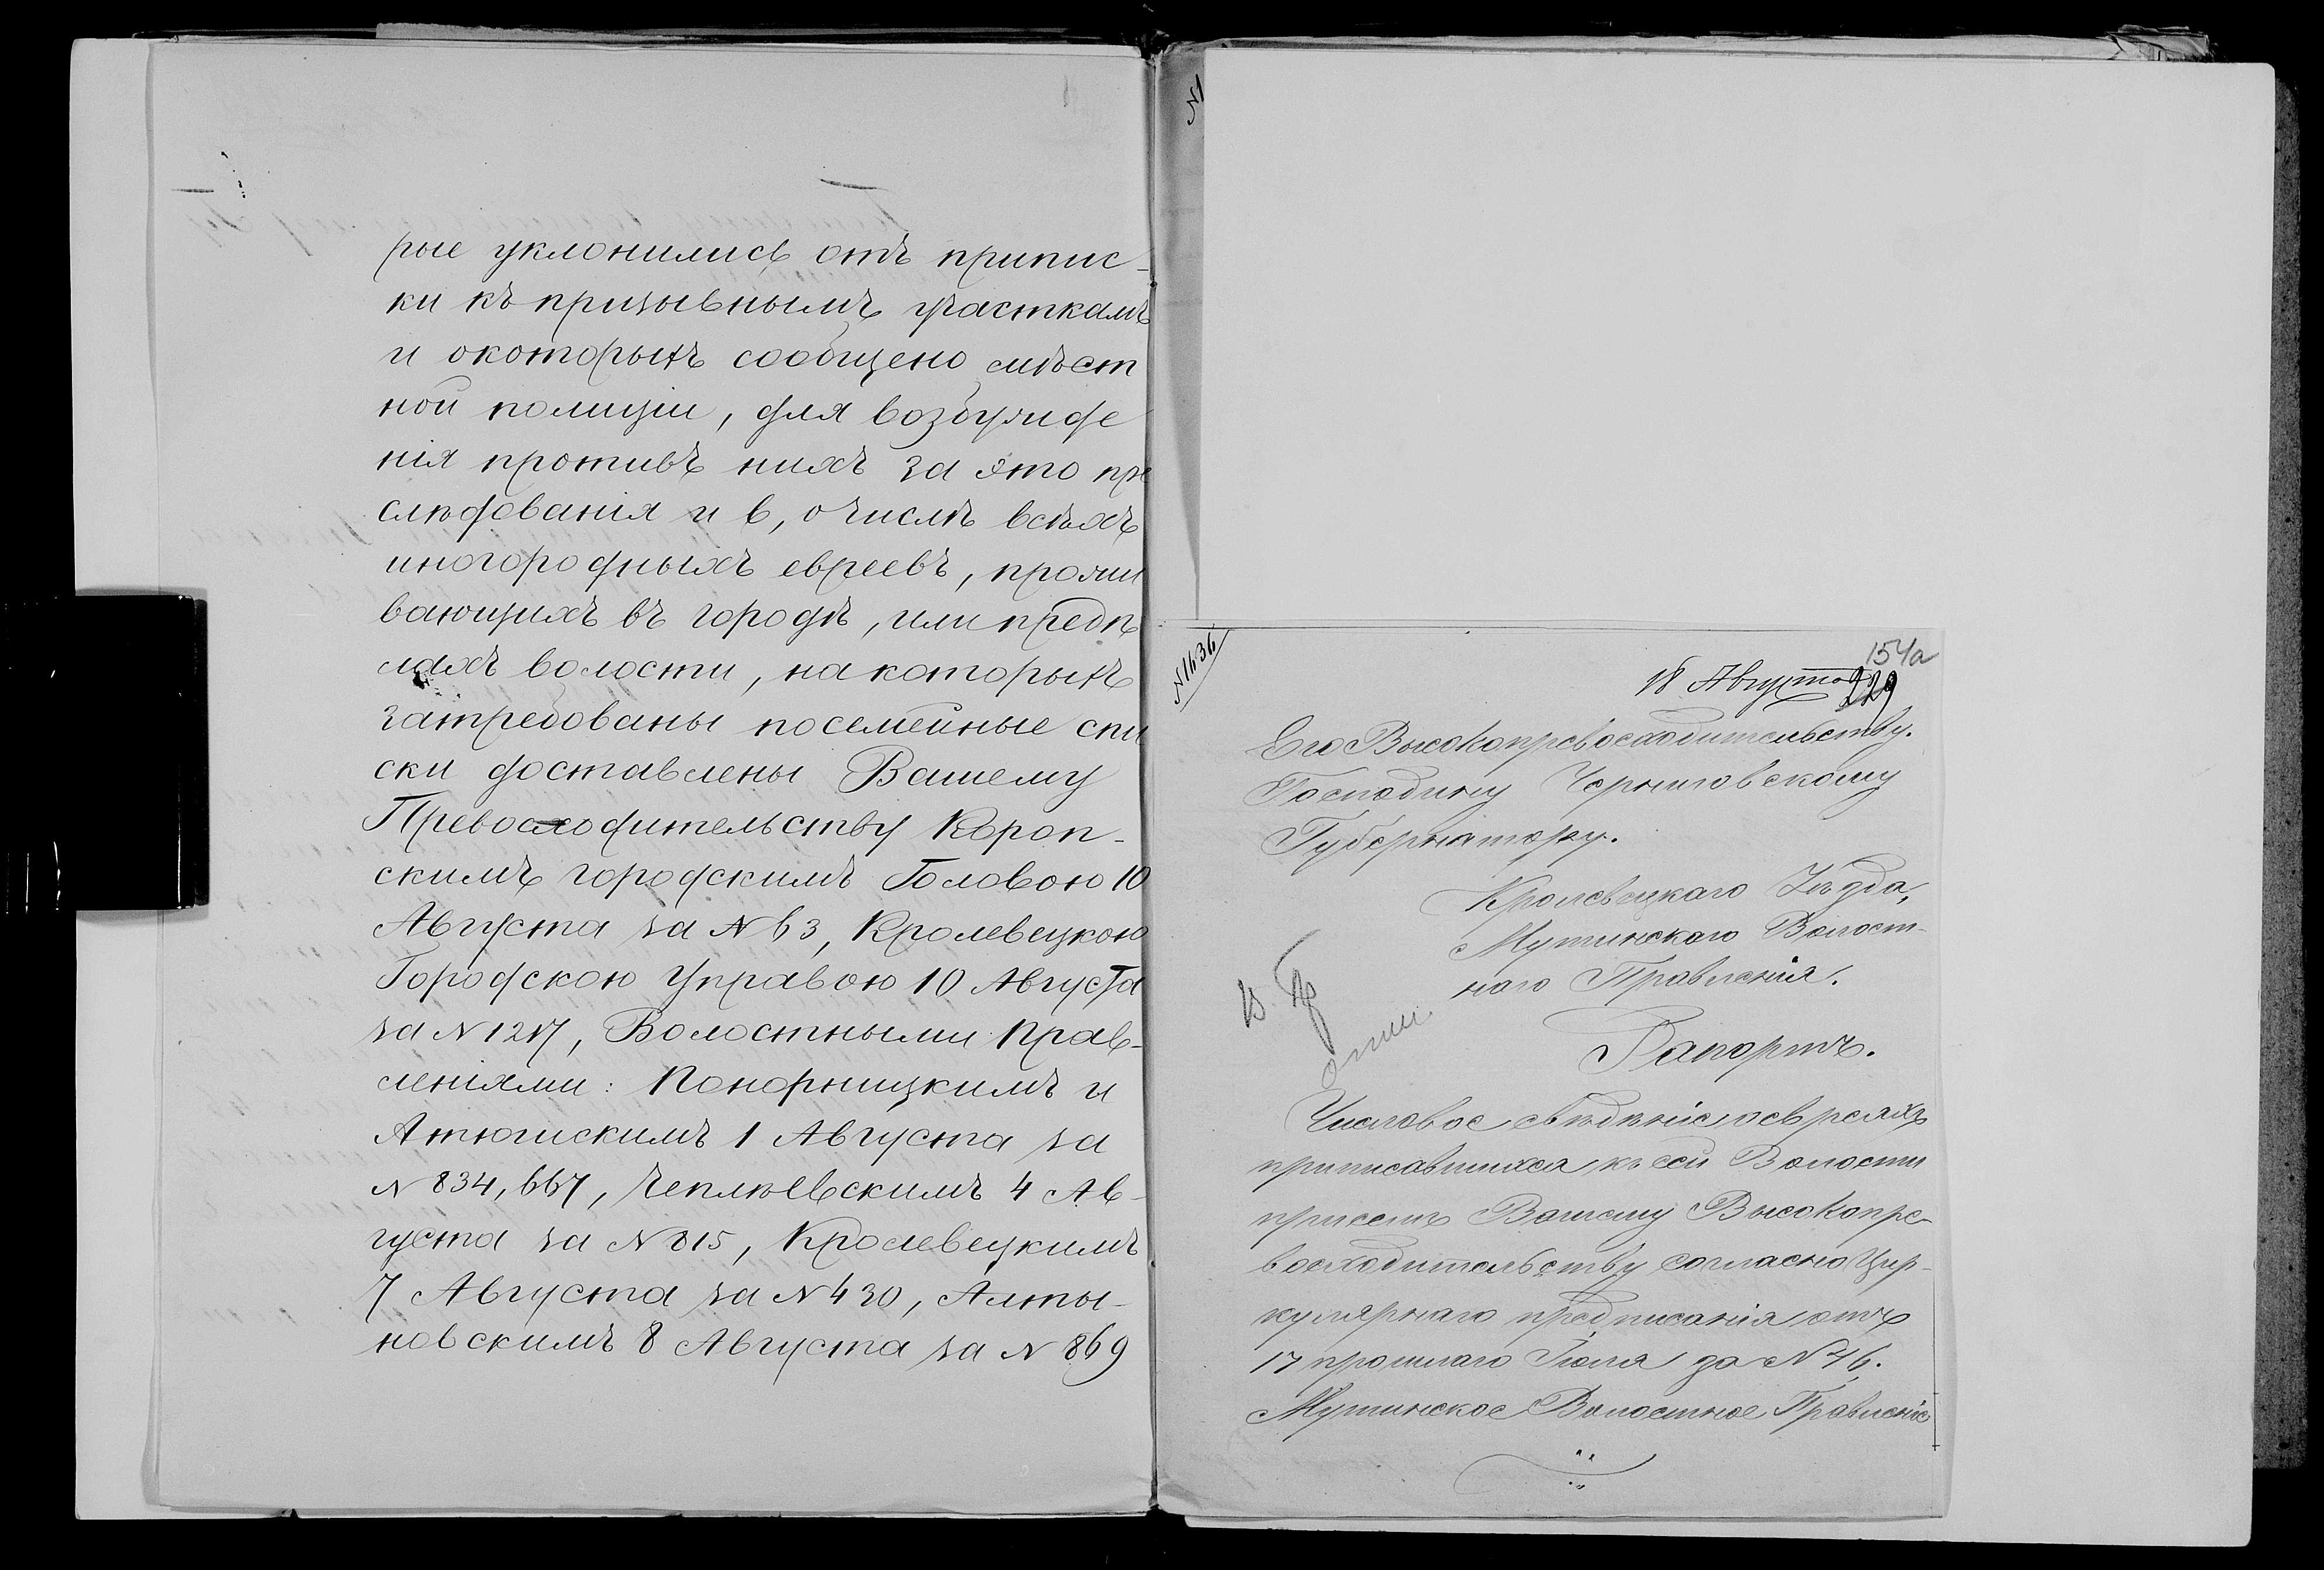 рые уклонились отъ припис-
ки къ призывнымъ участкамъ
и окоторыхъ сообщено мѣст
ной полиціи, для возбужде
нія противъ нихъ за это пре
слѣдованія и в, очислѣ всѣхъ
иногородныхъ евреевъ, прожи
вающихъ въ городѣ, или предѣ
лахъ волости, на которыхъ
затребованы посемейные спи
ски доставлены Вашему
Превосходительству Короп-
скимъ городскимъ Головою 10
Августа за №63, Кролевецкою
Городскою Управою 10 Августа
за №1217, Волостными Прав-
леніями: Понорницкимъ и
Атюшскимъ 1 Августа за
№ 834, 667, Чеплѣевскимъ 4 Ав-
густа за №815, Кролевецкимъ
7 Августа за №430, Алты-
новскимъ 8 Августа за № 869
№1
№1636
154а
18 Августа 229
Его Высокопревосходительству.
Господину Черниговскому
Губернатору.
Кролевецкаго Уѣзда,
Мутинскаго Волост-
наго Правленія.
Рапортъ.
Числовое свѣдѣніе оевреяхъ
приписавшихся къ сей Волости
присемъ Вашему Высокопре-
восходительству согласно Цир-
кулярнаго предписанія отъ
17 прошлаго Іюля за №46.
Мутинское Волостное Правленіе